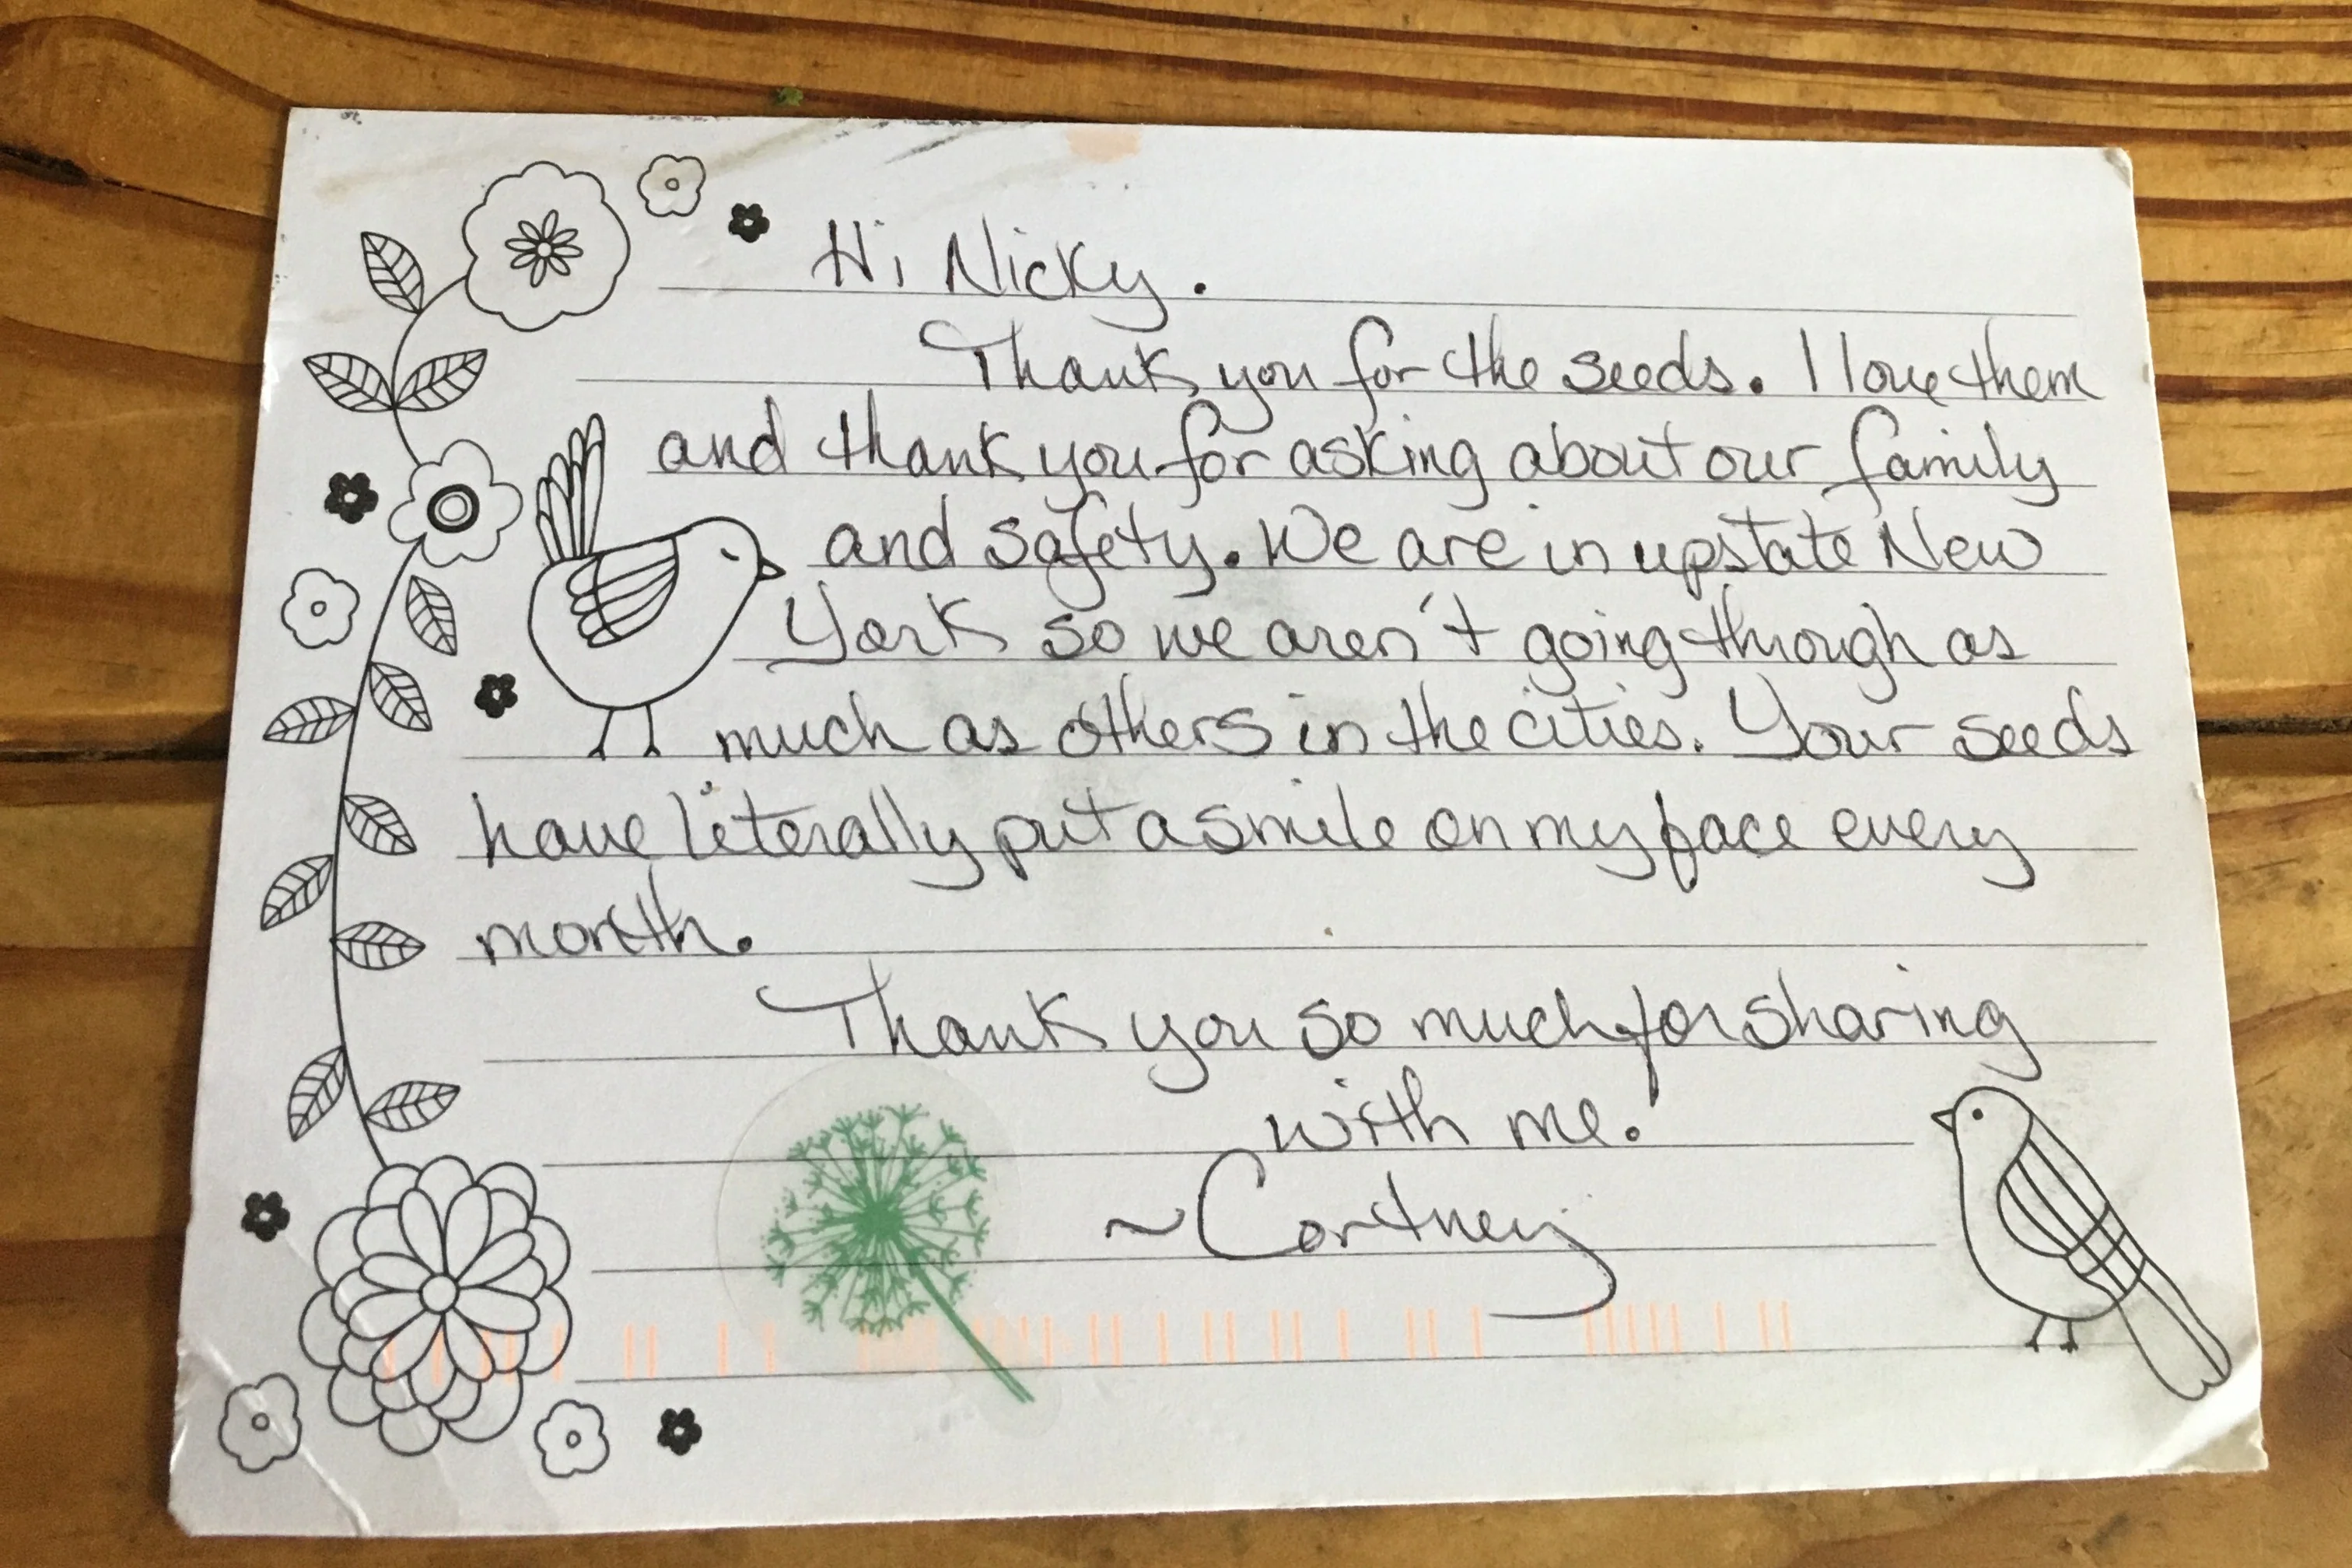 Hi Nicky.
Thank you for the seeds. I love them
and thank you for asking about our family
and safety. We are in upstate New
York so we aren't going through as
much as others in the cities. Your seeds
have literally put a smile on my face every
month.
Thank you so much for sharing
with me.
~Cortney